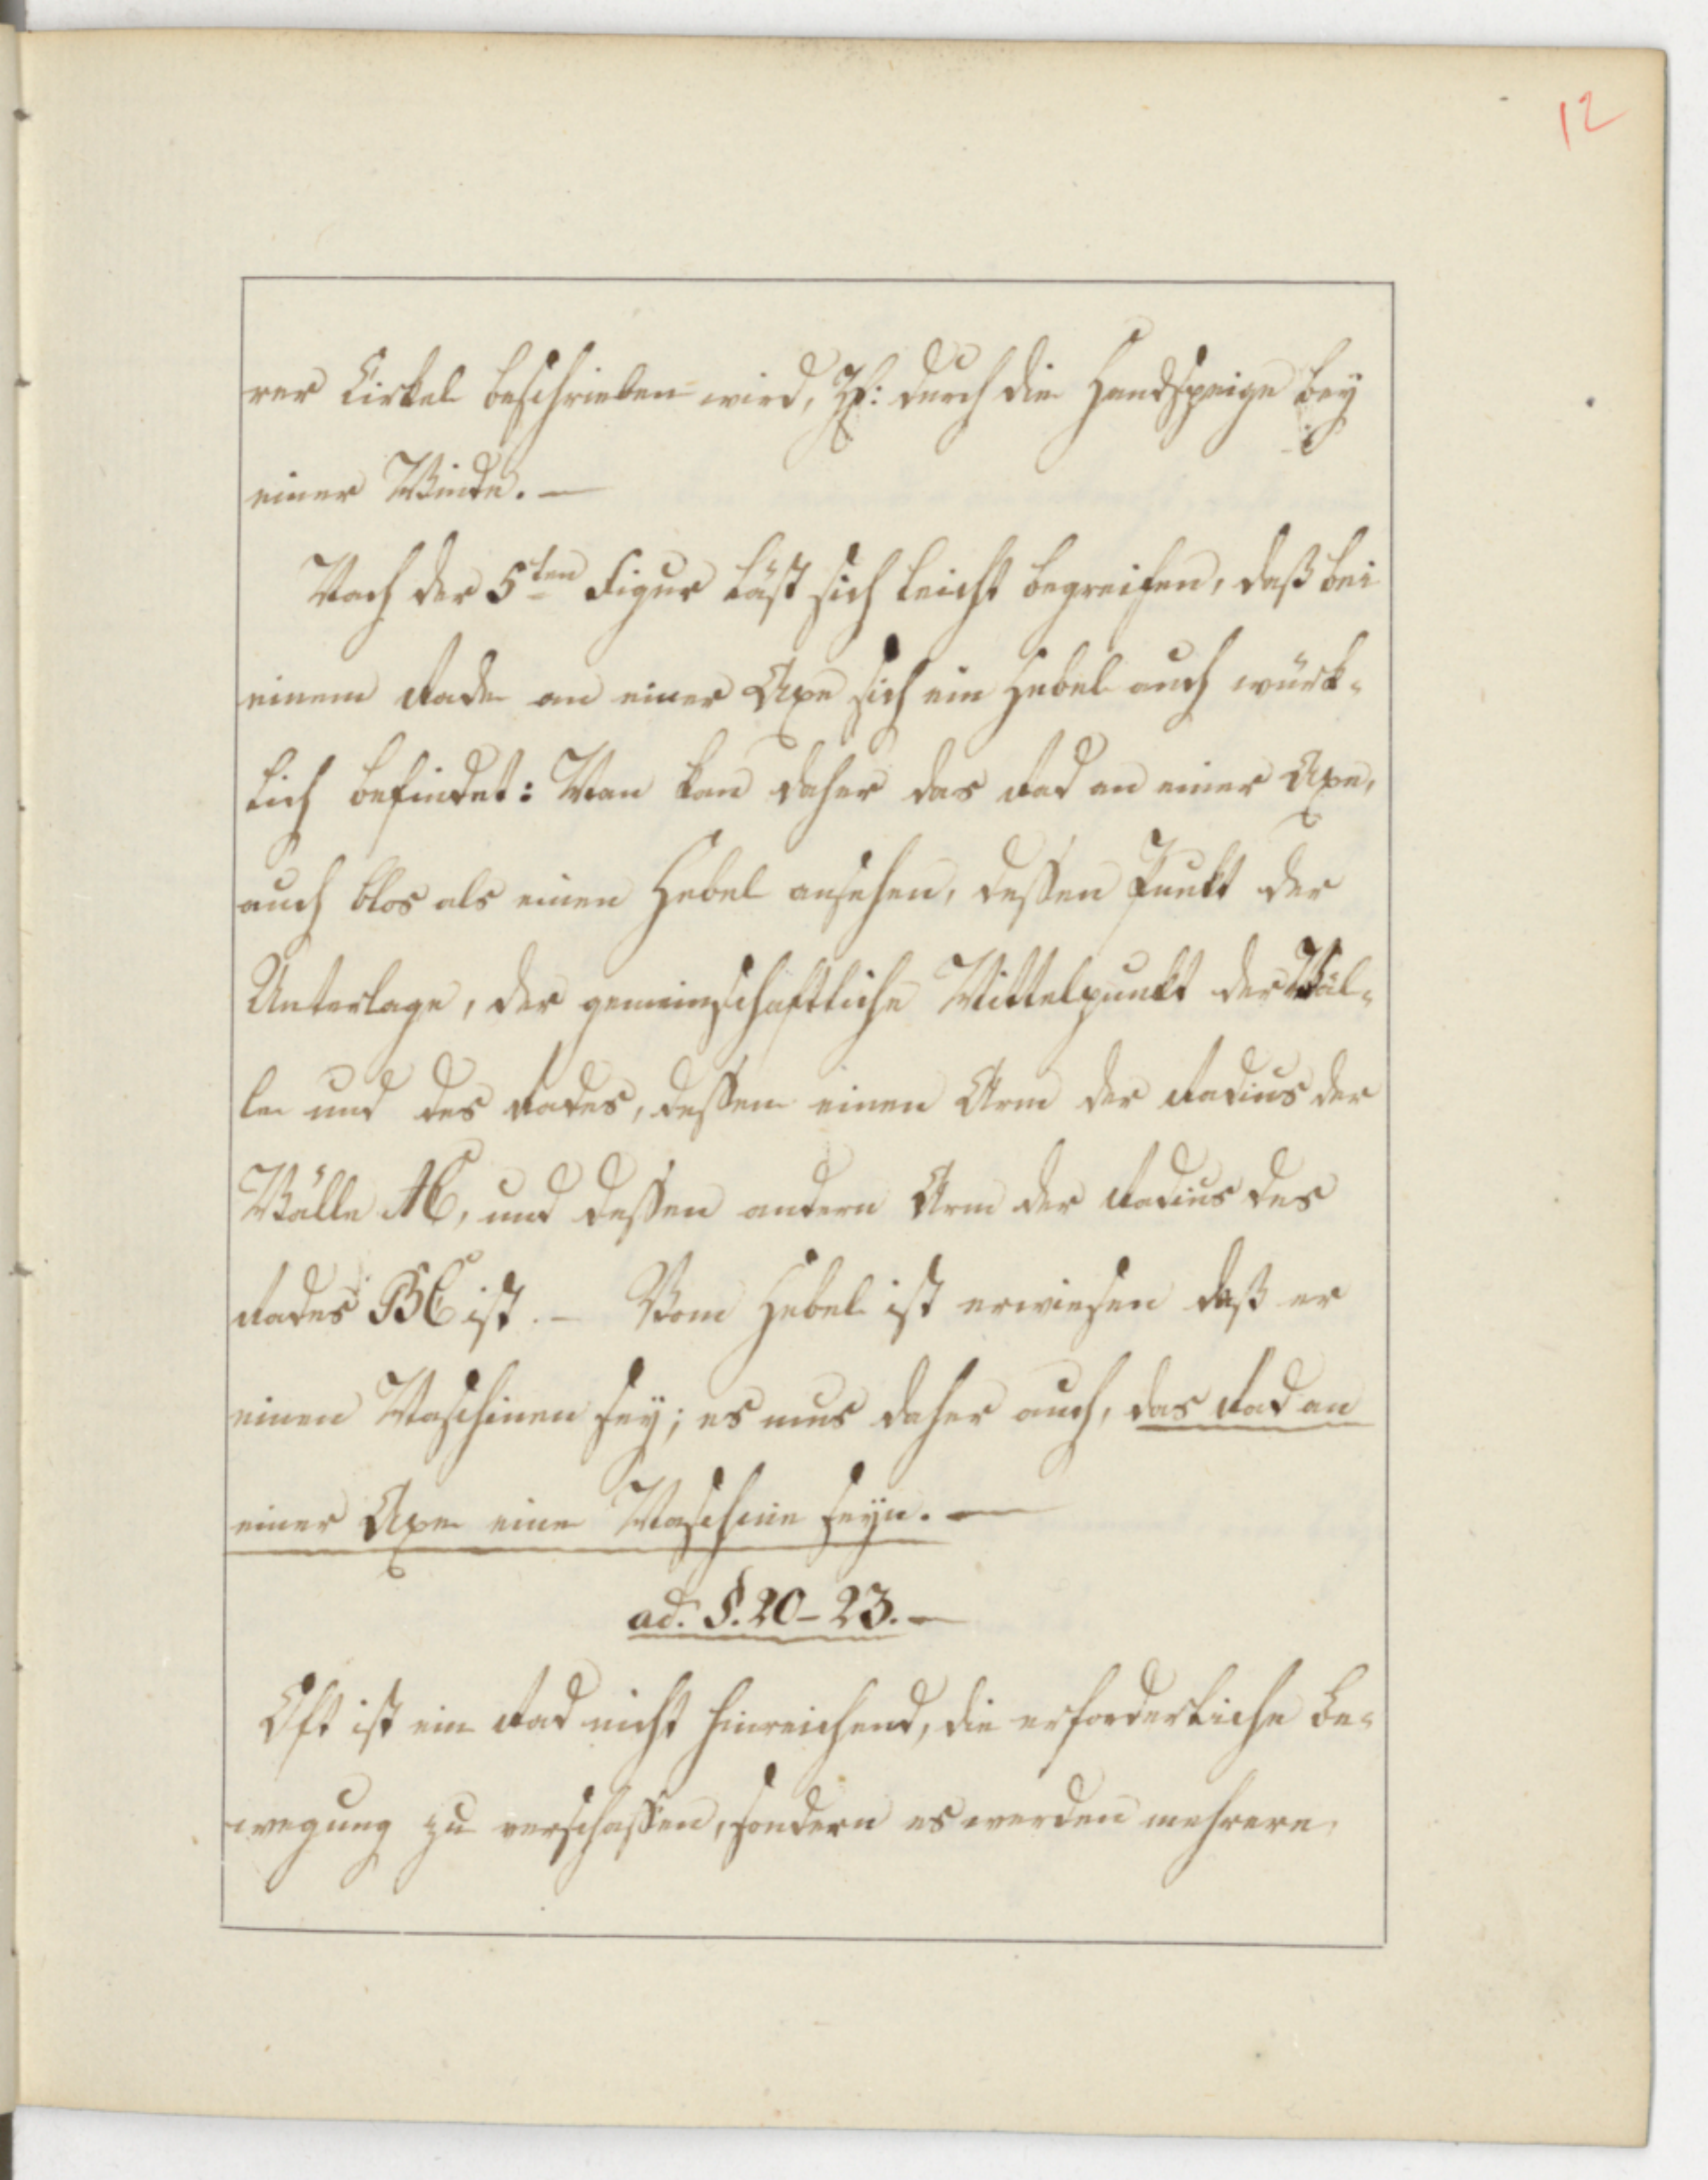 12
rer Cirkel beschrieben wird, Zβ: durch die Handspeige bey
einer Winde. —
Nach der 5ten Figur läst sich leicht begreifen, daß bei
einem Rade an einer Axe sich ein Hebel auch würk-
lich befindet: Man kan daher das Rad an einer Axe,
auch blos als einen Hebel ansehen, deßen Punkt der
Unterlage, der gemeinschaftliche Mittelpunkt der Wäl-
le und des Rades, deßen einen Arm der Radius der
Wälle AC, und deßen andern Arm der Radius des
Rades BC ist. — Vom Hebel ist erwiesen daß er
einen Maschinen sey; es mus daher auch, das Rad an
einer Axe eine Maschine seyn. —
ad. §. 20-23. —
Oft ist ein Rad nicht hinreichend, die erforderliche Be-
wegung zu verschaffen, sondern es werden mehrere,